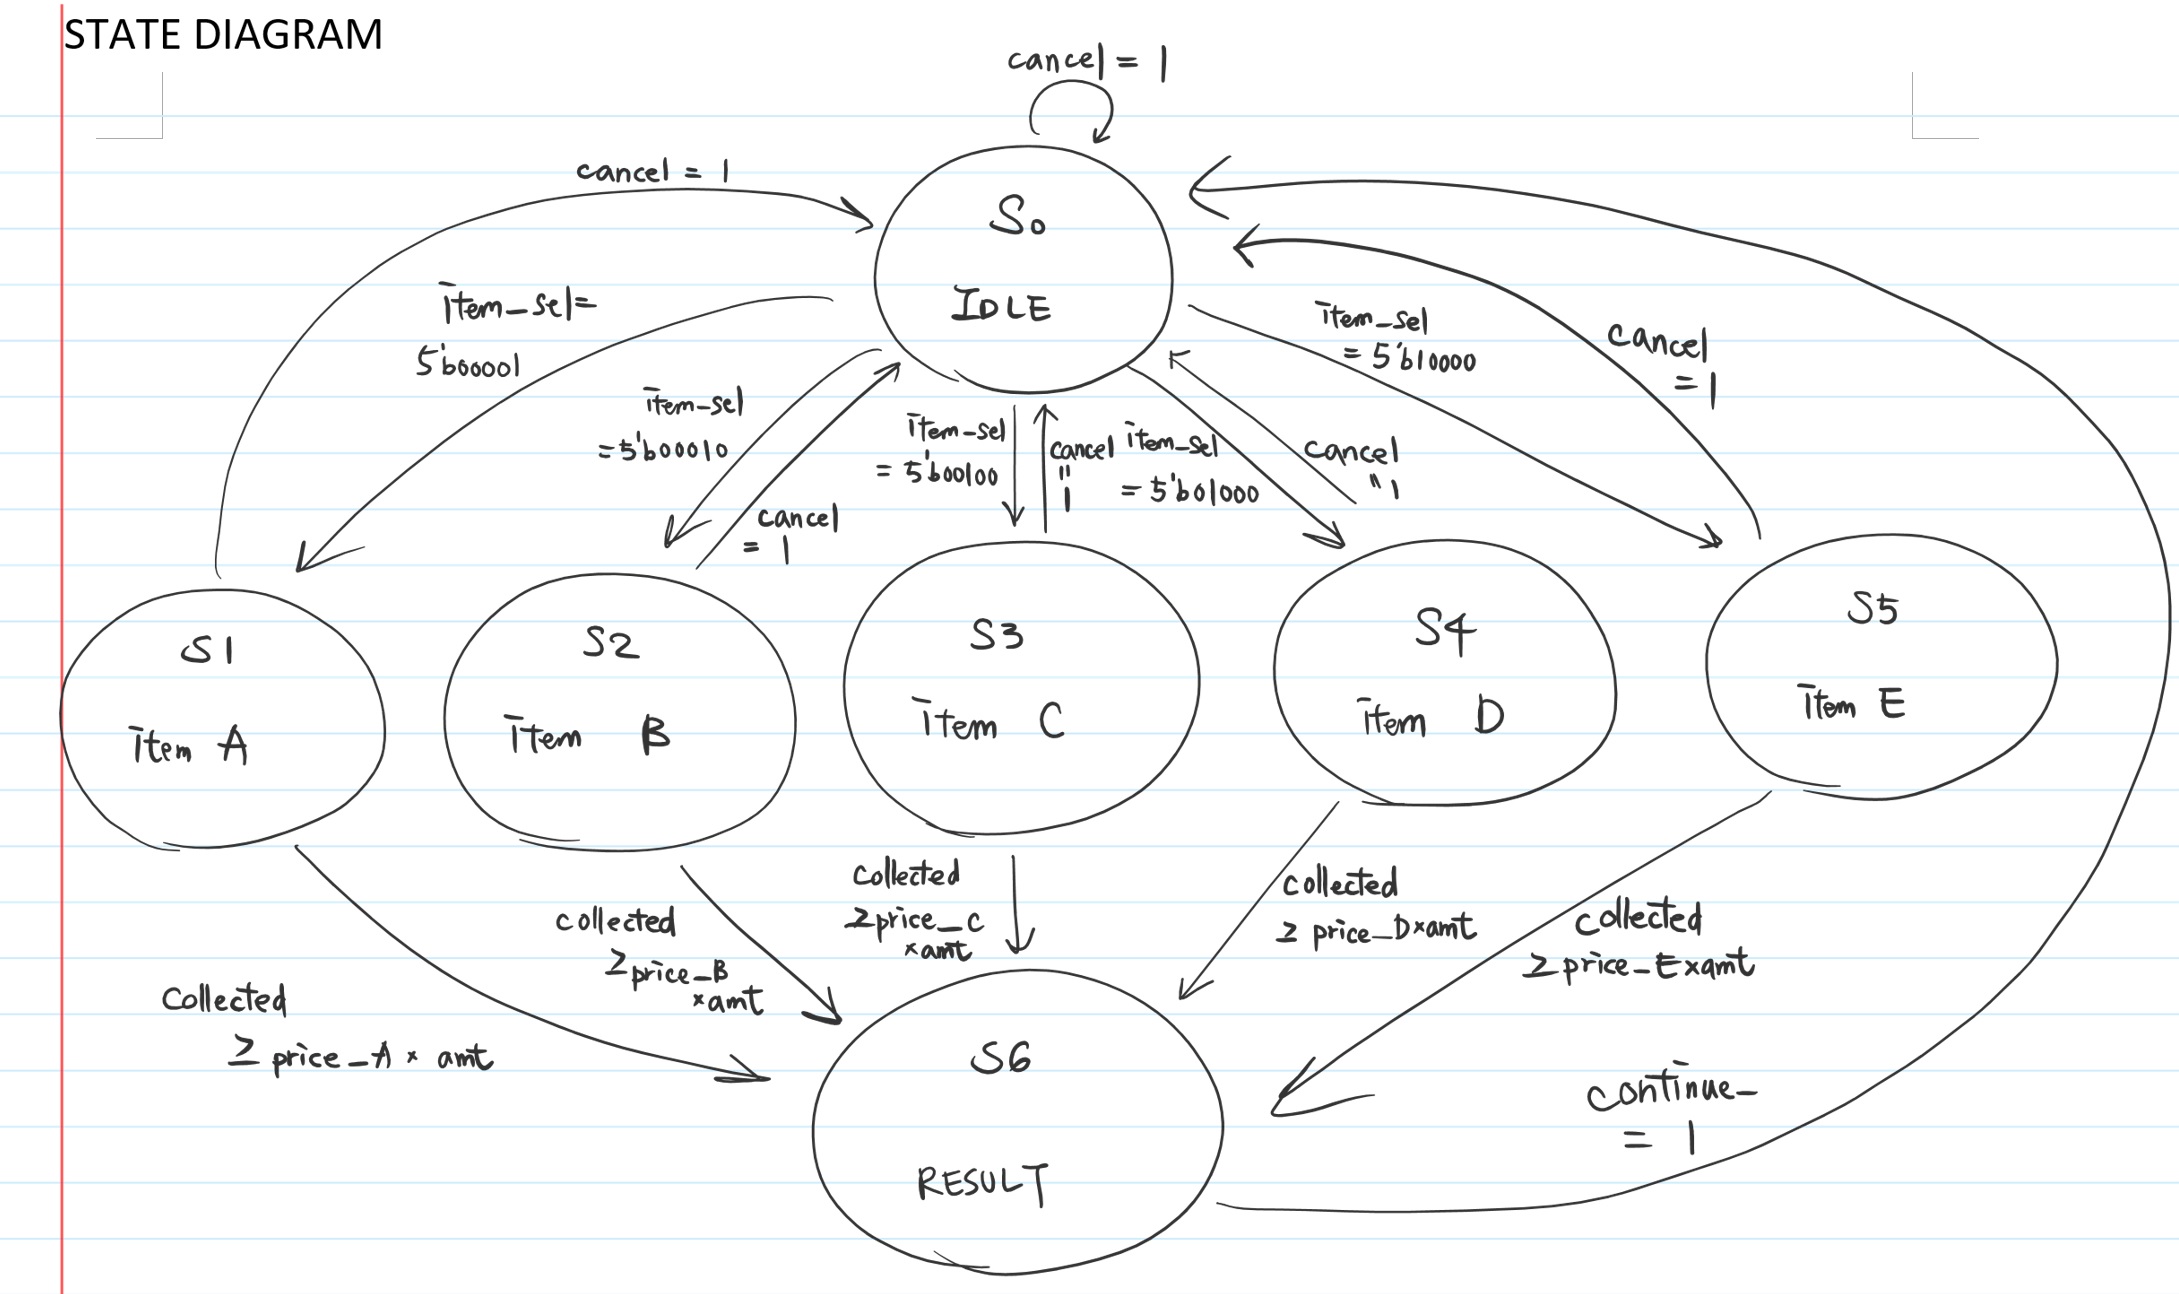 STATE DIAGRAM
cancel = 1
cancel = 1
S0
IDLE
item_sel=
5'b00001
item_sel
= 5'b10000
cancel
= 1
item_sel
= 5'b00010
item_sel
= 5'b00100
cancel
=
1
item_sel
= 5'b01000
cancel
= 1
cancel
= 1
S1
item A
S2
item B
S3
item C
S4
item D
S5
item E
collected
≥ price_A × amt
collected
≥ price_B
× amt
collected
≥ price_C
× amt
collected
≥ price_D × amt
collected
≥ price_E × amt
S6
RESULT
continue_
= 1